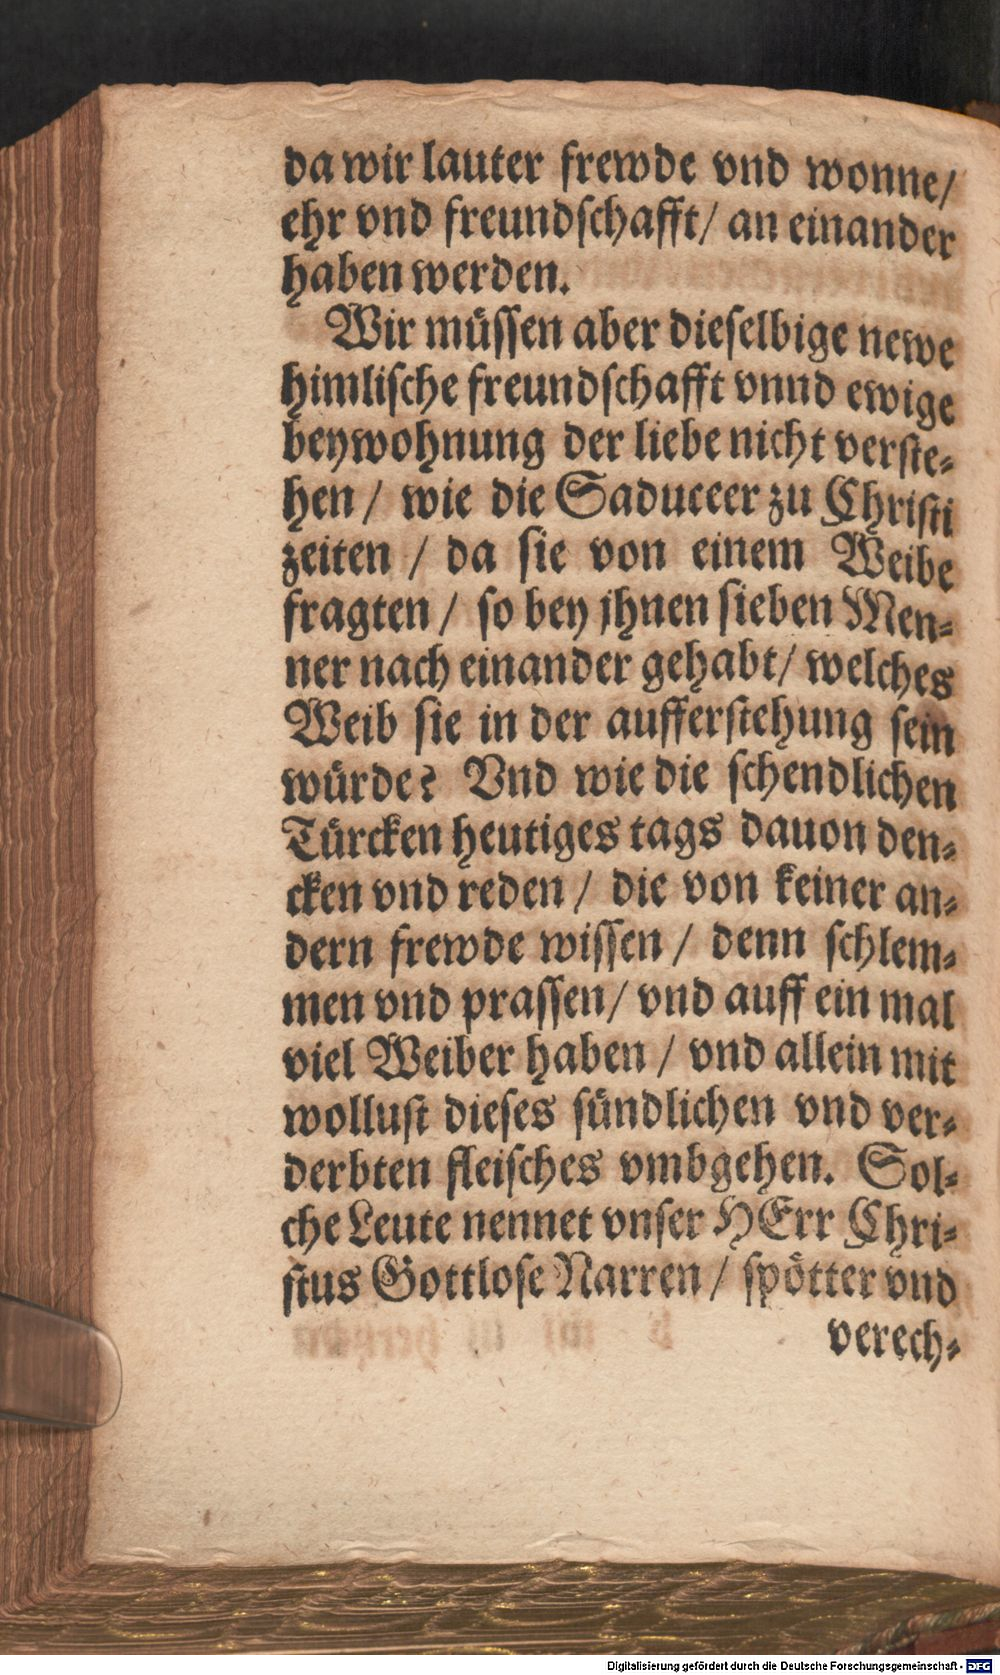 da wir lauter frewde vnd wonne/
ehr vnd freundschafft/ an einander
haben werden.
Wir müssen aber dieselbige newe
himlische freundschafft vnnd ewige
beywohnung der liebe nicht verste-
hen / wie die Saduceer zu Christi
zeiten / da sie von einem Weibe
fragten / so bey jhnen sieben Men-
ner nach einander gehabt/ welches
Weib sie in der aufferstehung sein
würde? Vnd wie die schendlichen
Türcken heutiges tags dauon den-
cken vnd reden / die von keiner an-
dern frewde wissen / denn schlem-
men vnd prassen/ vnd auff ein mal
viel Weiber haben / vnd allein mit
wollust dieses sündlichen vnd ver-
derbten fleisches vmbgehen. Sol-
che Leute nennet vnser HErr Chri-
stus Gottlose Narren / spötter vnd
verech-
Digitalisierung gefördert durch die Deutsche Forschungsgemeinschaft - DFG